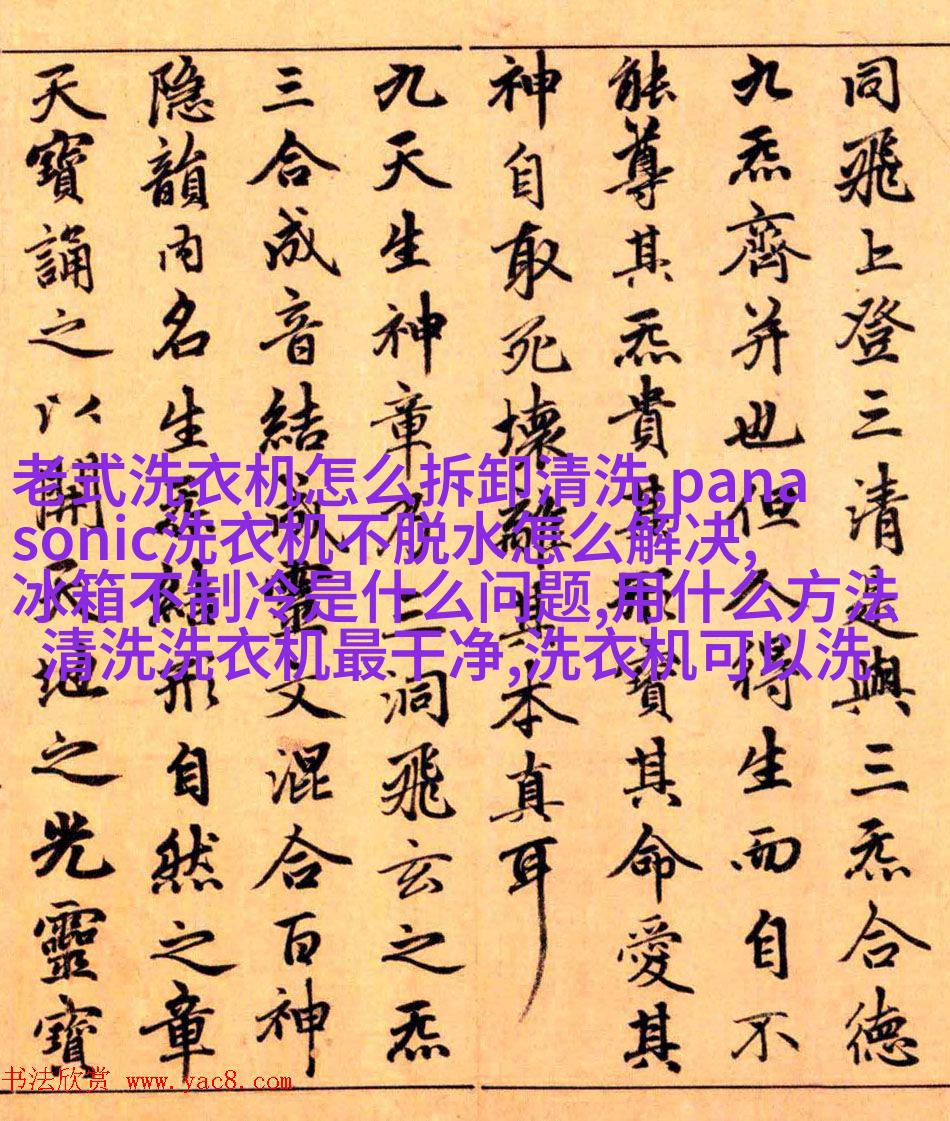 同飛上登三清是與三炁合德
九炁齊并也但人得生而自不
能尊其炁貴其形寶其命愛其
神自取死壞離其本真耳
九天生神章乃三洞飛玄之炁
三合成音結成靈文混合百神
隐韻内名生炁結形自然之章
天寶誦之以開天地之光靈寶
老式洗衣机怎么拆卸清洗,pana
sonic洗衣机不脱水怎么解决,
冰箱不制冷是什么问题,用什么方法
清洗洗衣机最干净,洗衣机可以洗
书法欣赏 www.yac8.com